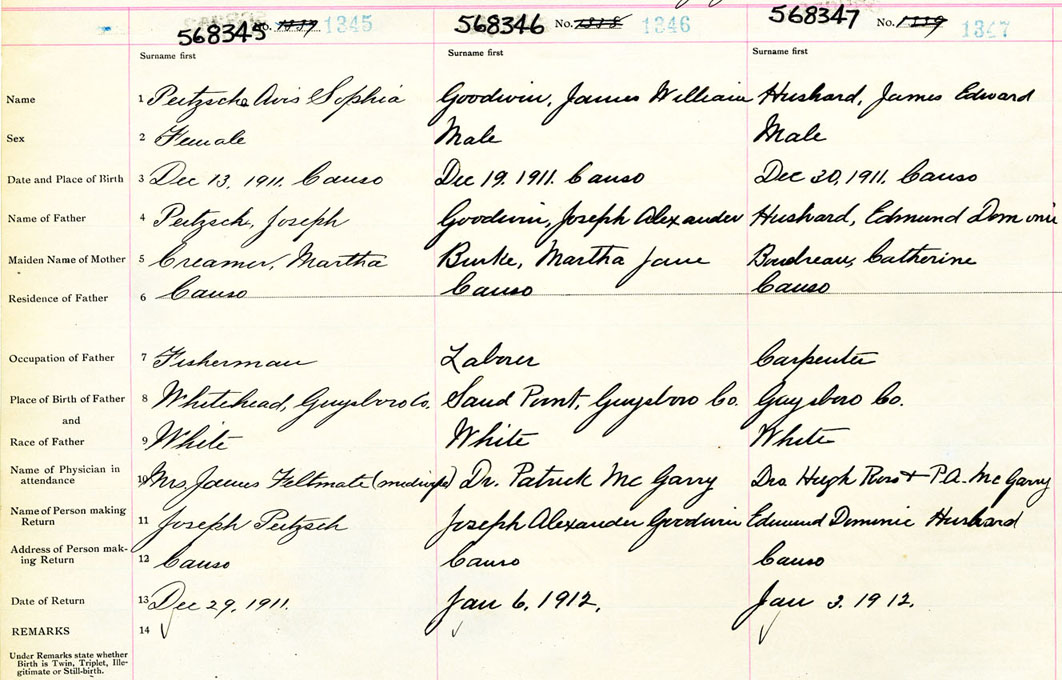 568345 No. 1337 1345 568346 No. 1338 1346 568347 No. 1339 1347
Surname first Surname first Surname first
Name 1 Peitzsch, Avis Sophia Goodwin, James William Hushard, James Edward
Sex 2 Female Male Male
Date and Place of Birth 3 Dec 13, 1911. Canso Dec 19. 1911. Canso Dec 30, 1911. Canso
Name of Father 4 Peitzsch, Joseph Goodwin, Joseph Alexander Hushard, Edmund Dominic
Maiden Name of Mother 5 Creamer, Martha Burke, Martha Jane Boudreau, Catherine
Residence of Father 6 Canso Canso Canso
Occupation of Father 7 Fisherman Laborer Carpenter
Place of Birth of Father 8 Whitehead, Guysboro Co. Sand Point, Guysboro Co. Guysboro Co.
and
Race of Father 9 White White White
Name of Physician in attendance 10 Mrs. James Feltmate (midwife) Dr. Patrick Mc Garry Drs. Hugh Ross + P.A. Mc Garry
Name of Person making Return 11 Joseph Peitzsch Joseph Alexander Goodwin Edmund Dominic Hushard
Address of Person mak-
ing Return 12 Canso Canso Canso
Date of Return 13 Dec 29, 1911. Jan 6, 1912. Jan 3. 1912.
REMARKS 14
Under Remarks state whether
Birth is Twin, Triplet, Ille-
gitimate or Still-birth.